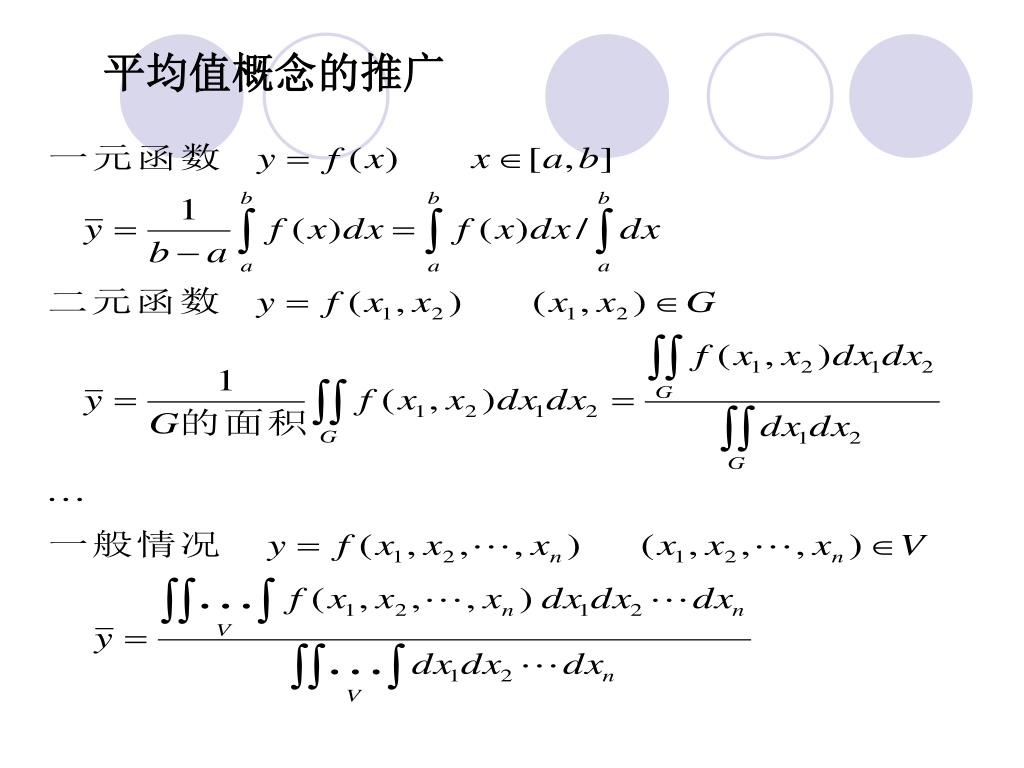 平均值概念的推广
一元函数 y = f(x) x ∈ [a, b]
ȳ = \frac{1}{b − a} \int_a^b f(x)dx = \int_a^b f(x)dx / \int_a^b dx
二元函数 y = f(x₁, x₂) (x₁, x₂) ∈ G
ȳ = \frac{1}{G的面积} \iint_G f(x₁, x₂)dx₁dx₂ = \frac{\iint_G f(x₁, x₂)dx₁dx₂}{\iint_G dx₁dx₂}
…
一般情况 y = f(x₁, x₂, ⋯, , xₙ) (x₁, x₂, ⋯, , xₙ) ∈ V
ȳ = \frac{\iint…\int_V f(x₁, x₂, ⋯, , xₙ) dx₁dx₂ ⋯ dxₙ}{\iint…\int_V dx₁dx₂ ⋯ dxₙ}